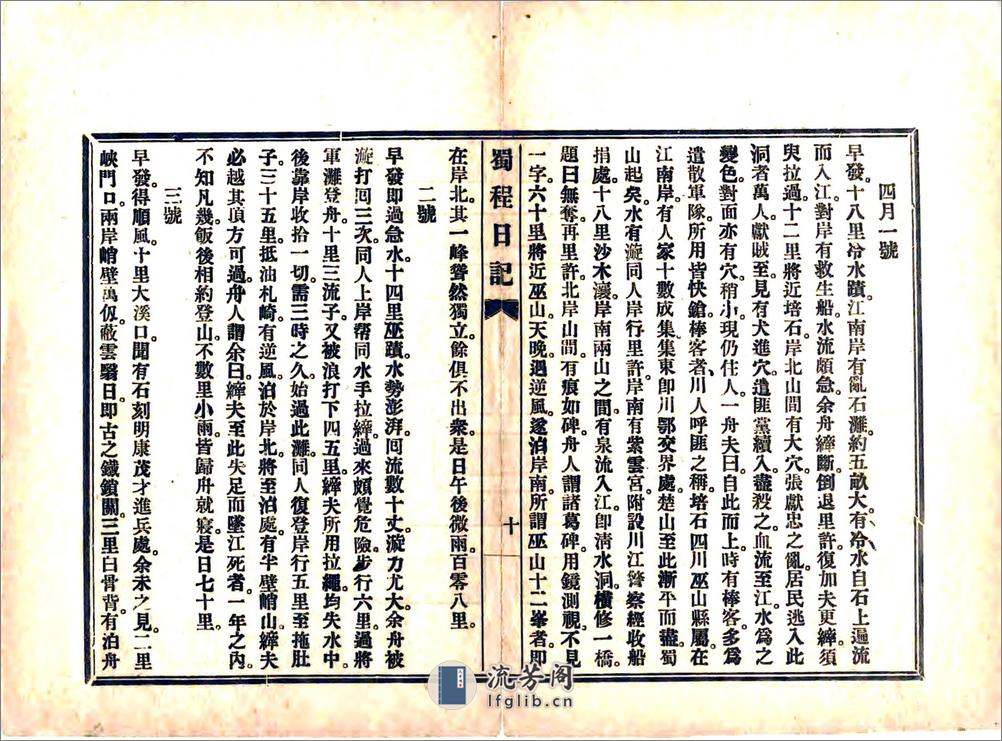 四月一號
早發。十八里冷水蹟。江南岸有亂石灘約五畝大。有冷水自石上遍流
而入江。對岸有救生船。水流頗急。余舟縴斷。倒退里許。復加夫更縴。須
臾拉過。十二里將近培石。岸北山間有大穴。張獻忠之亂。居民逃入此
洞者萬人。獻賊至。見有犬進穴。遣匪黨續入盡殺之。血流至江。水爲之
變色。對面亦有穴。稍小。現仍住人。一舟夫曰。自此而上。時有棒客。多爲
遣散軍隊。所用皆快鎗。棒客者。川人呼匪之稱。培石四川巫山縣屬。在
江南岸。有人家十數成集。集東卽川鄂交界處。楚山至此漸平而盡。蜀
山起矣。水有漩。同人岸行里許。岸南有紫雲宮。附設川江警察經收船
捐處。十八里沙木瀼。岸南兩山之間有泉流入江。卽清水洞。橫修一橋。
題曰無奪。再里許。北岸山間。有痕如碑。舟人謂諸葛碑。用鏡測視。不見
一字。六十里將近巫山。天晚遇逆風。遂泊岸南。所謂巫山十二峯者。即
蜀程日記
十
在岸北。其一峰聳然獨立。餘俱不出衆。是日午後微雨。百零八里。
二號
早發。卽過急水。十四里巫蹟。水勢澎湃。囘流數十丈。漩力尤大。余舟被
漩打囘三次。同人上岸。帮同水手拉縴過來。頗覺危險。步行六里。過將
軍灘登舟。十里三流子。又被浪打下四五里。縴夫所用拉繩。均失水中。
後靠岸收拾一切。需三時之久。始過此灘。同人復登岸行五里。至拖肚
子。三十五里抵油札崎。有逆風。泊於岸北。將至泊處。有半壁峭山。縴夫
必越其頂。方可過。舟人謂余曰。縴夫至此失足而墜江死者。一年之內。
不知凡幾。飯後相約登山。不數里小雨。皆歸舟就寢。是日七十里。
三號
早發。得順風。十里大溪口。聞有石刻明康茂才進兵處。余未之見。二里
峽門口。兩岸峭壁萬仭。蔽雲翳日。即古之鐵鎖關。三里白骨背。有泊舟
流芳阁
lfglib.cn